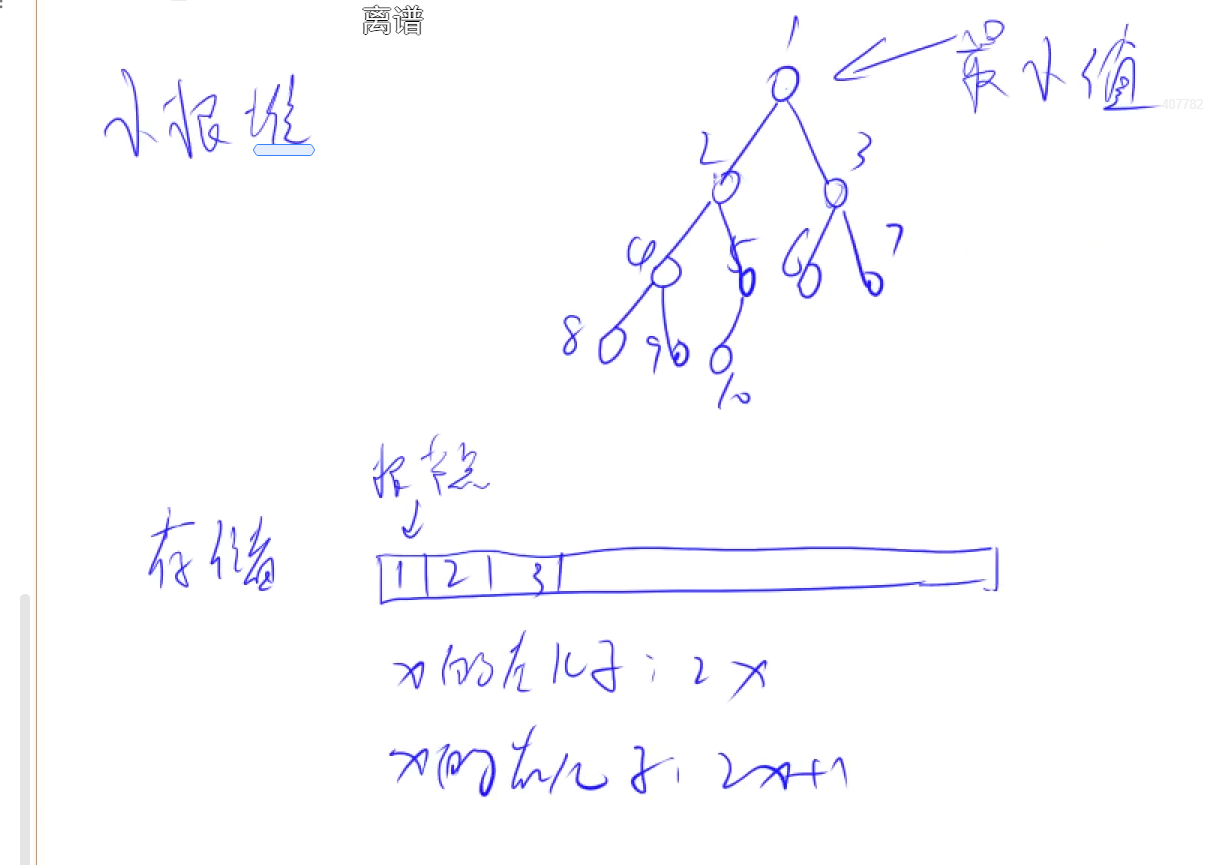 离谱
小根堆
最小值
407782
1
2 3
4 5 6 7
8 9 10
根节点
存储
1 2 3
x的左儿子: 2x
x的右儿子: 2x+1